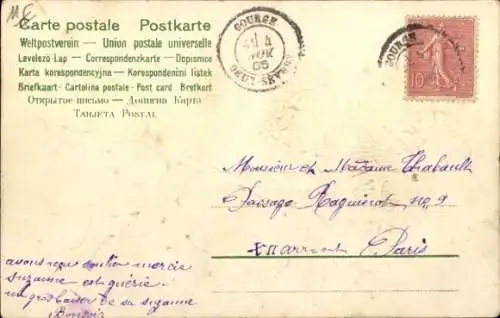 Carte postale Postkarte
Weltpostverein — Union postale universelle
Levelezö-Lap — Correspondenzkarte — Dopisnice
Karta korespondencyjna — Korespondenční listek
Briefkaart - Cartolina postale - Post card - Brefkort
Открытое письмо — Дописна Карта
Tarjeta Postal
GOURGÉ
05
DEUX-SÈVRES
GOURGÉ
10
Monsieur et Madame Thabault
Passage Raguinot no 9
XII arront Paris
avons reçu mercie
suzanne est guérie
un gros baiser de sa suzanne
Bonsoir